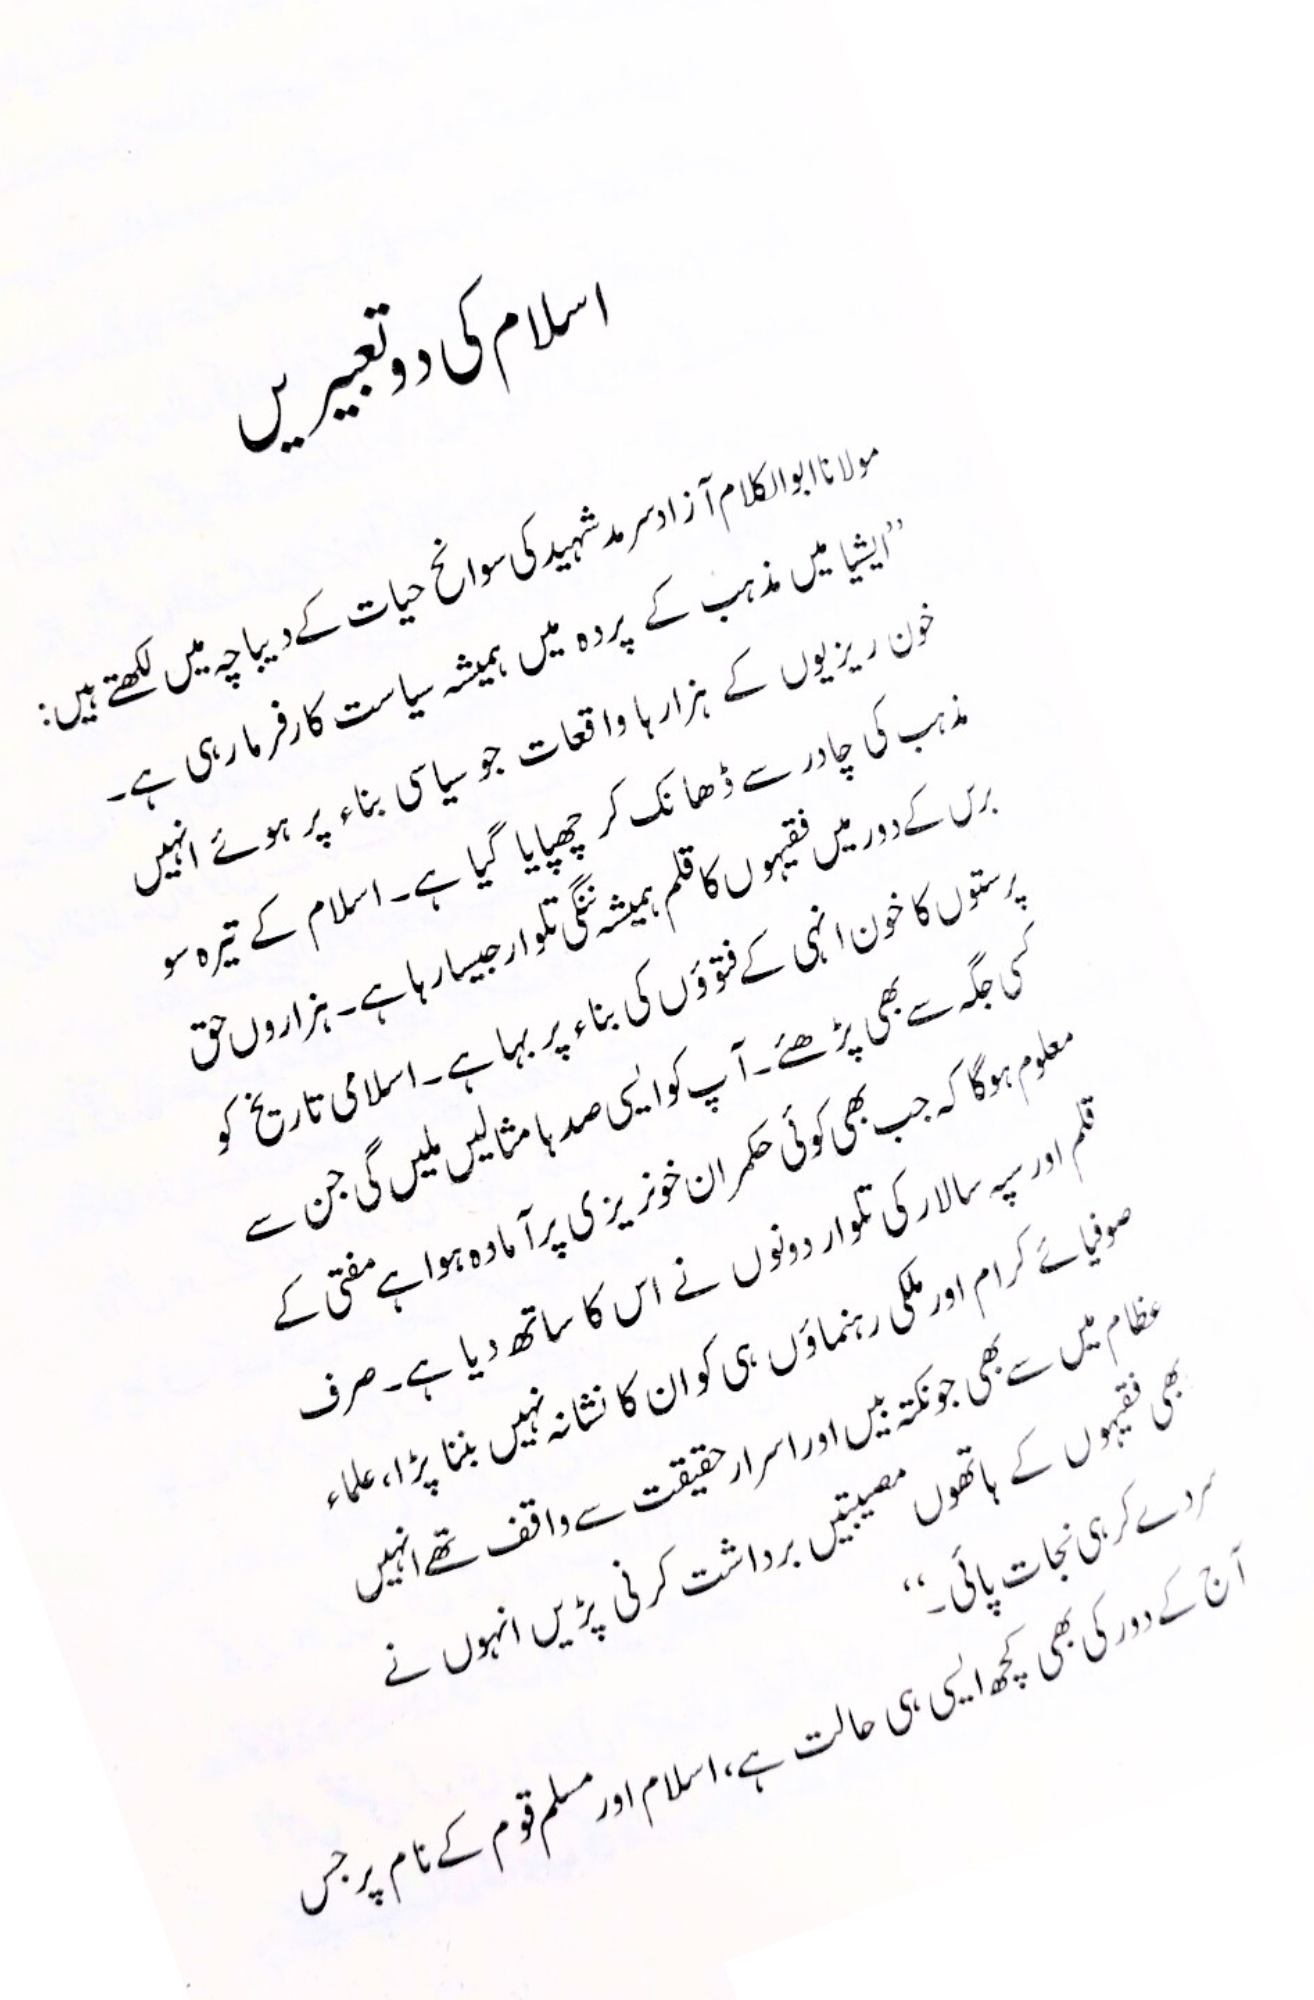 اسلام کی دو تعبیریں
مولانا ابوالکلام آزاد سرمد شہید کی سوانح حیات کے دیباچہ میں لکھتے ہیں:
”ایشیا میں مذہب کے پردہ میں ہمیشہ سیاست کارفرما رہی ہے۔
خون ریزیوں کے ہزارہا واقعات جو سیاسی بناء پر ہوئے انہیں
مذہب کی چادر سے ڈھانک کر چھپایا گیا ہے۔ اسلام کے تیرہ سو
برس کے دور میں فقیہوں کا قلم ہمیشہ ننگی تلوار جیسا رہا ہے۔ ہزاروں حق
پرستوں کا خون انہی کے فتوؤں کی بناء پر بہا ہے۔ اسلامی تاریخ کو
کسی جگہ سے بھی پڑھئے۔ آپ کو ایسی صدہا مثالیں ملیں گی جن سے
معلوم ہوگا کہ جب بھی کوئی حکمران خونریزی پر آمادہ ہوا ہے مفتی کے
قلم اور سپہ سالار کی تلوار دونوں نے اس کا ساتھ دیا ہے۔ صرف
صوفیائے کرام اور ملکی رہنماؤں ہی کو ان کا نشانہ نہیں بننا پڑا، علماء
عظام میں سے بھی جو نکتہ بیں اور اسرار حقیقت سے واقف تھے انہیں
بھی فقیہوں کے ہاتھوں مصیبتیں برداشت کرنی پڑیں انہوں نے
سر دے کر ہی نجات پائی۔“
آج کے دور کی بھی کچھ ایسی ہی حالت ہے، اسلام اور مسلم قوم کے نام پر جس